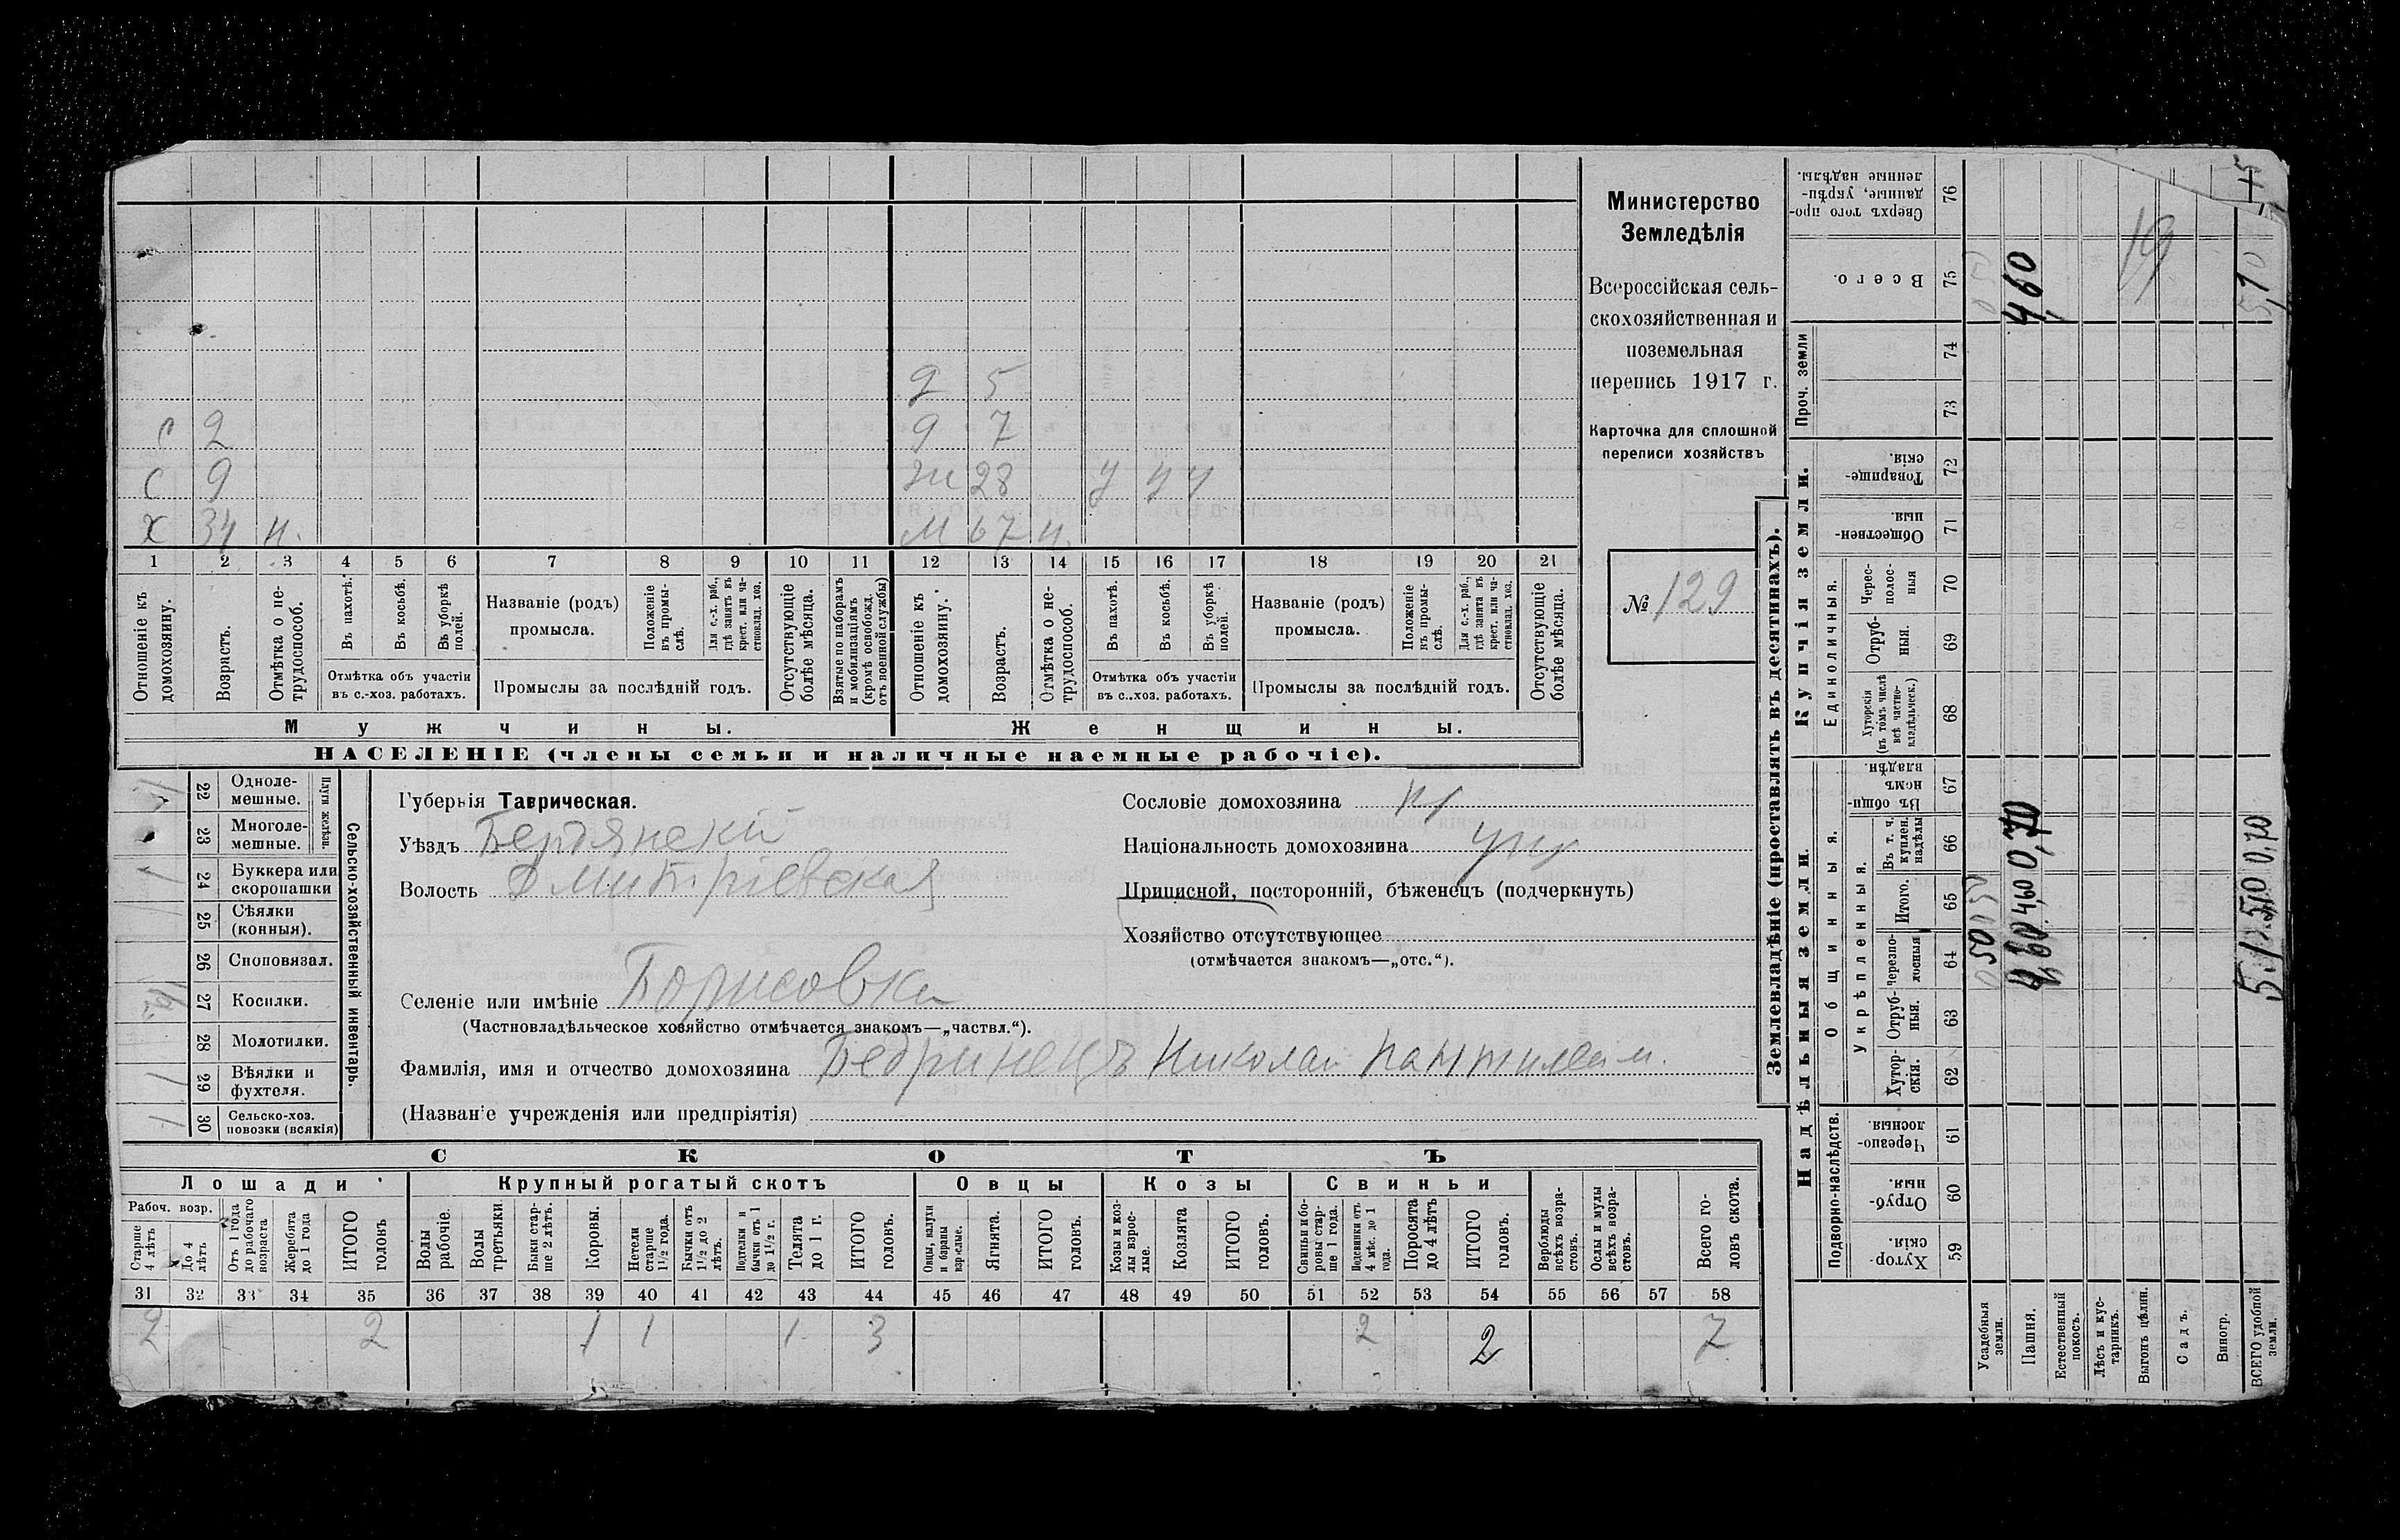 Министерство
Земледѣлія
Всероссійская сель-
скохозяйственная и
поземельная
перепись 1917 г.
Карточка для сплошной
переписи хозяйствъ
№ 129
9 5
с 2 9 7
с 9 ж 28 у у у
х 34 н. м 67 н.
1 2 3 4 5 6 7 8 9 10 11 12 13 14 15 16 17 18 19 20 21
Отношеніе къ домохозяину.
Возрастъ.
Отмѣтка о не-трудоспособ.
Въ пахотѣ.
Въ косьбѣ.
Въ уборкѣ полей.
Отмѣтка объ участіи
въ с.-хоз. работахъ.
Названіе (родъ)
промысла.
Положеніе въ промы-слѣ.
Для с.-х. раб., гдѣ занятъ въ крест. или ча-стновлад. хоз.
Промыслы за послѣдній годъ.
Отсутствующіе болѣе мѣсяца.
Взятые по наборамъ и мобилизаціямъ (кромѣ освобожд. отъ военной службы)
Отношеніе къ домохозяину.
Возрастъ.
Отмѣтка о не-трудоспособ.
Въ пахотѣ.
Въ косьбѣ.
Въ уборкѣ полей.
Отмѣтка объ участіи
въ с.-хоз. работахъ.
Названіе (родъ)
промысла.
Положеніе въ промы-слѣ.
Для с.-х. раб., гдѣ занята въ крест. или ча-стновлад. хоз.
Промыслы за послѣдній годъ.
Отсутствующіе болѣе мѣсяца.
Мужчины. Женщины.
НАСЕЛЕНІЕ (члены семьи и наличные наемные рабочіе).
Сельско-хозяйственный инвентарь.
Плуги желѣзн.
22 Одноле-мешные.
23 Многоле-мешные.
24 Буккера или скоропашки 1
25 Сѣялки (конныя).
26 Сноповязал.
27 Косилки.
28 Молотилки.
29 Вѣялки и фухтеля. 1
30 Сельско-хоз. повозки (всякія) 1
Губернія Таврическая.
Уѣздъ Бердянски
Волость Дмитріевская
Селеніе или имѣніе Борисовка
(Частновладѣльческое хозяйство отмѣчается знакомъ—„частвл.“).
Фамилія, имя и отчество домохозяина Бедринецъ Николай
(Названіе учрежденія или предпріятія)
Сословіе домохозяина кр
Національность домохозяина укр
Приписной, посторонній, бѣженецъ (подчеркнуть)
Хозяйство отсутствующее
(отмѣчается знакомъ—„отс.“).
СКОТЪ
Лошади Крупный рогатый скотъ Овцы Козы Свиньи
Рабоч. возр.
Старше 4 лѣтъ
До 4 лѣтъ
Отъ 1 года до рабочаго возраста
Жеребята до 1 года
ИТОГО головъ
Волы рабочіе.
Волы третьяки.
Быки стар-ше 2 лѣтъ.
Коровы.
Нетели старше 1½ года.
Бычки отъ 1½ до 2 лѣтъ.
Подтелки и бычки отъ 1 до 1½ г.
Телята до 1 г.
ИТОГО головъ.
Овцы, валухи и бараны взрослые.
Ягнята.
ИТОГО головъ.
Козы и коз-лы взрос-лые.
Козлята
ИТОГО головъ.
Свиньи и бо-ровы стар-ше 1 года.
Подсвинки отъ 4 мѣс. до 1 года.
Поросята до 4 лѣтъ
ИТОГО головъ.
Верблюды всѣхъ возра-стовъ.
Ослы и мулы всѣхъ возра-стовъ.
Всего го-ловъ скота.
31 32 33 34 35 36 37 38 39 40 41 42 43 44 45 46 47 48 49 50 51 52 53 54 55 56 57 58
2 2 1 1 1 3 2 2 7
Землевладѣніе (проставлять въ десятинахъ).
Надѣльныя земли. Купчія земли. Проч. земли
Подворно-наслѣдств.
Общинныя.
Укрѣпленныя.
Единоличныя.
Хутор-скія. 59
Отруб-ныя 60
Черезпо-лосныя. 61
Хутор-скія. 62
Отруб-ныя. 63
Черезпо-лосныя 64
Итого. 65
Въ т. ч. куплен. надѣлы 66
Въ общи-номъ владѣн. 67
Хуторскія (въ томъ числѣ всѣ частно-владѣльческ.) 68
Отруб-ныя. 69
Черес-полос-ныя 70
Обществен-ныя. 71
Товарище-скія. 72
73
74
Всего. 75
Сверхъ того про-данные, укрѣп-ленные надѣлы. 76
Усадебныя земли.
Пашня. 4,60 0,70 4,60
Естественный покосъ.
Лѣсъ и кус-тарникъ.
Выгонъ цѣлин.
Садъ.
Виногр.
ВСЕГО удобной земли. 0,70 5,10
19